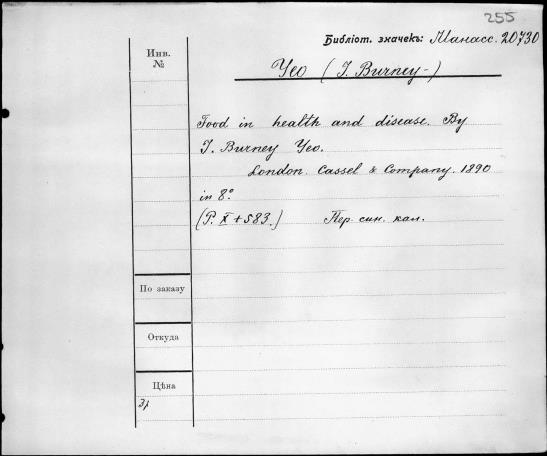 255
Библіот. значекъ: Манасс. 20730
Инв.
№
Yeo (I. Burney-)
Food in health and disease. By
I. Burney Yeo.
London. Cassel & Company. 1890
in 8°.
(P. X + 583.) Пер. син. кал.
По заказу
Откуда
Цѣна
3р